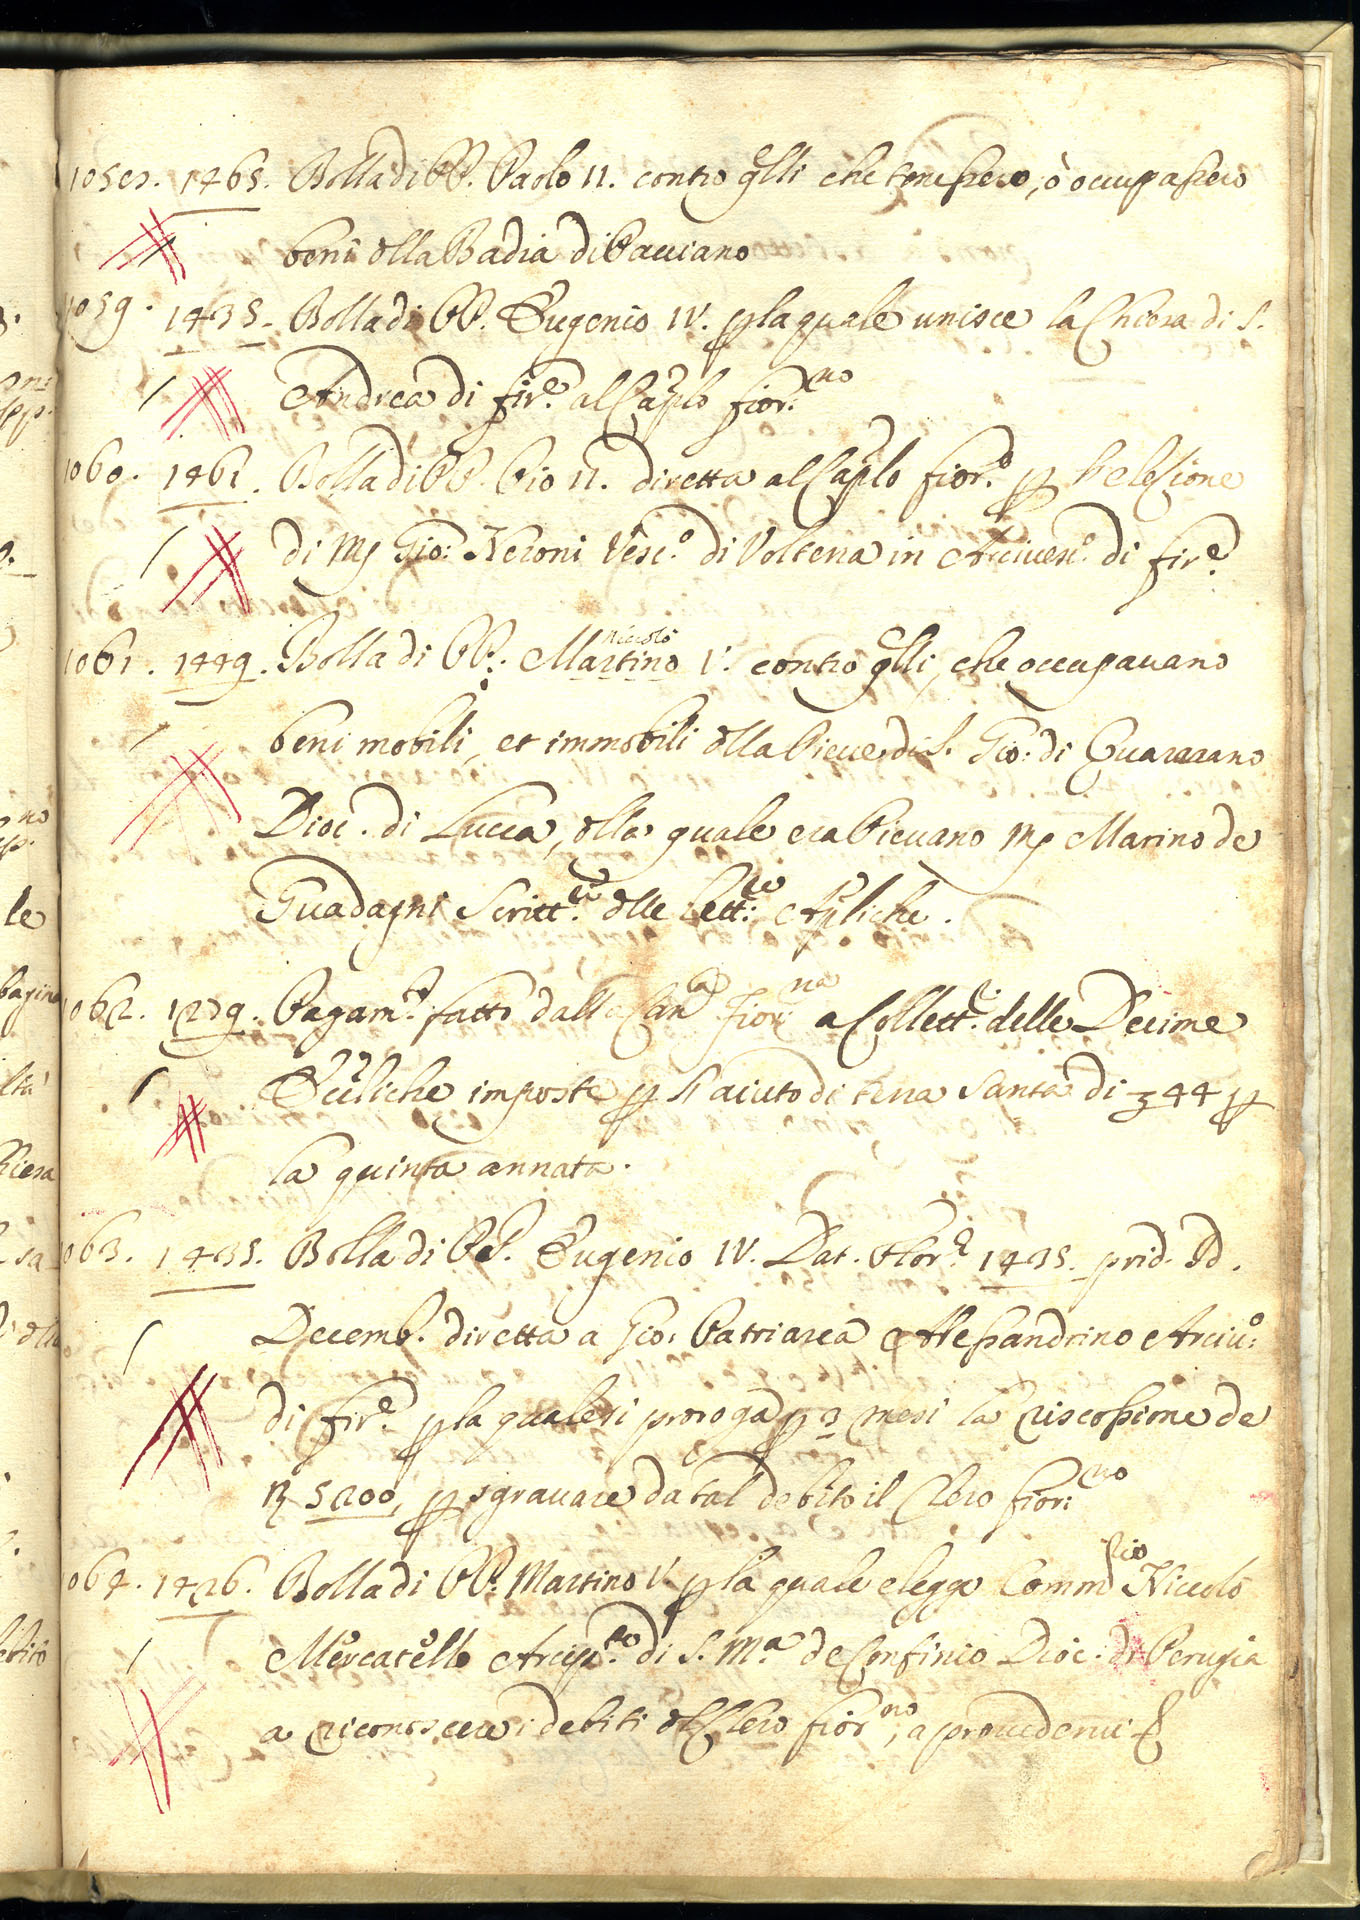 1058. 1465. Bolla di PP. Paolo II. contro q̃lli che tenessero, ò occupassero
beni d̃lla Badia di Pacciano
1059. 1435. Bolla di PP. Eugenio IV. p la quale unisce la Chiesa di S.
Andrea di fir.e al Cap̃lo fior.no
1060. 1461. Bolla di PP. Pio II. diretta al Cap̃lo fior.o p l'elezione
di Mp Gio: Neroni Vesc.o di Volterra in Arcivesc.o di fir.e
1061. 1449. Bolla di PP. Martino niccolò V. contro q̃lli, che occupavano
beni mobili, et immobili d̃lla Pieve di S. Gio: di
Dioc. di Lucca, d̃lla quale era Pievano Mp Marino de
Guadagni Scritt.re d̃lle Lett.re Ap̃liche.
1062. 1279. Pagam.to fatto dalla Can.ca fior.na a Collett.i delle Decime
Ecc̃liche imposte p l'aiuto di terra Santa di 344 p
la quinta annata.
1063. 1435. Bolla di PP. Eugenio IV. Dat. Flor.e 1435. prid. Id.
Decemb. diretta a Gio: Patriarca Alessandrino Arciv.o
di fir.e p la quale si proroga p 3 mesi la riscossione de
5200, p sgravare da tal debito il Clero fior.no
1064. 1426. Bolla di PP. Martino V. p la quale elegge Comm.rio Niccolò
Mercatello Arcip.te di S. M.a de Confinio Dioc. di Perugia
a riconoscere i debiti d̃l Clero fior.no, a provedervi &